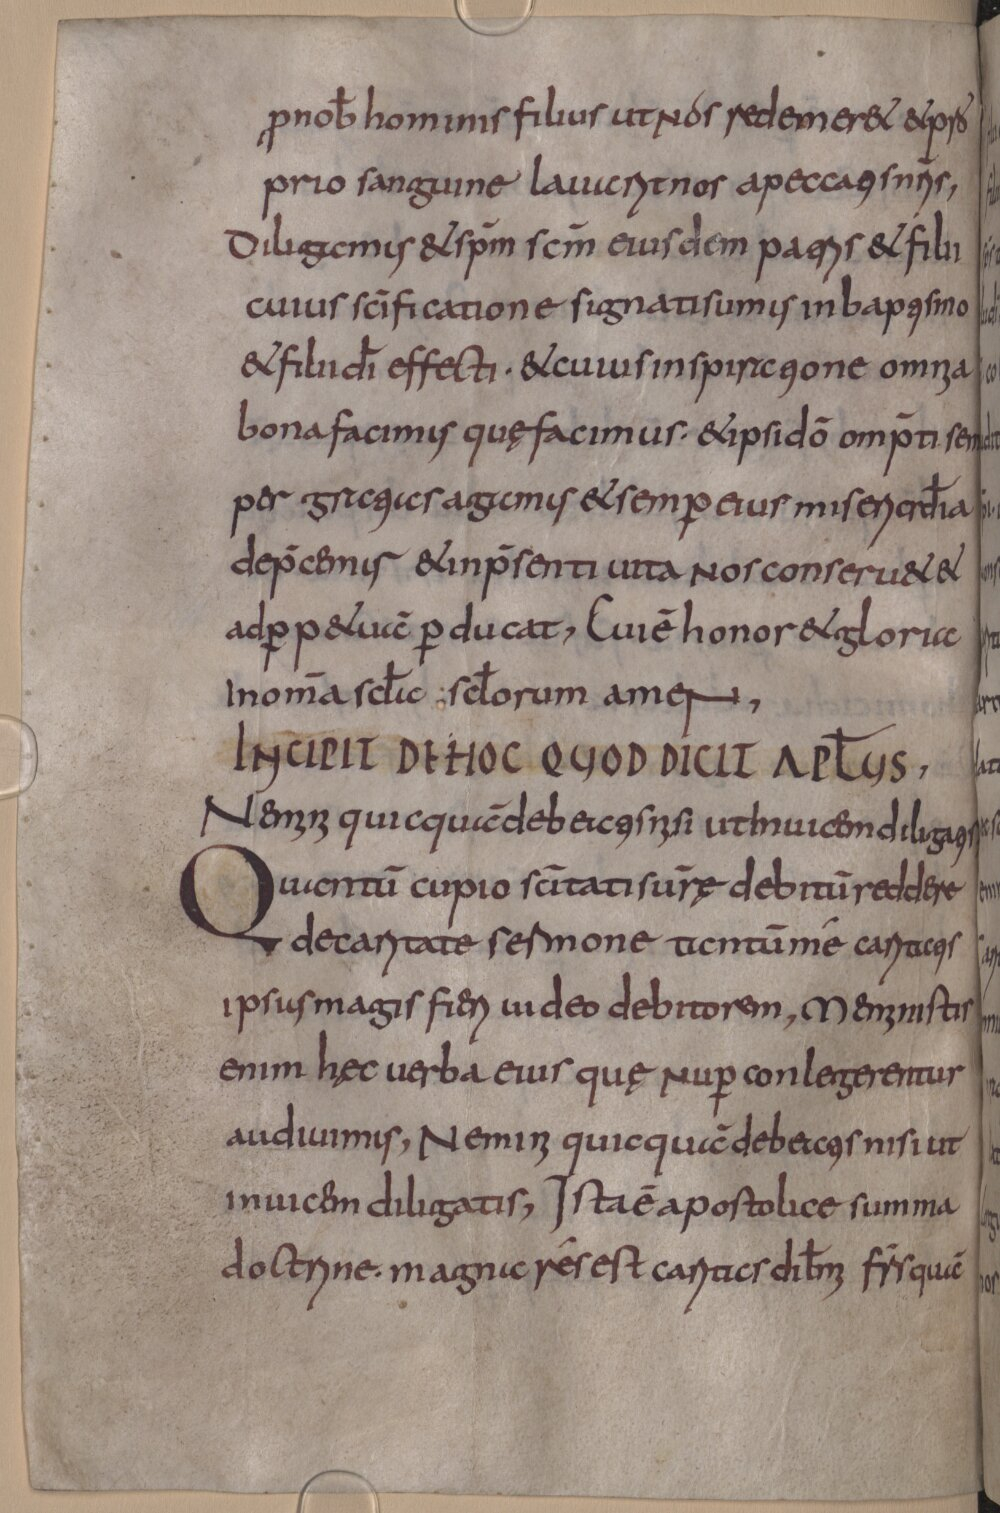 ꝓ nob̄ hominis filius ut nos redemer& &pro
prio sanguine lauarit nos apeccatis nr̄is,
Diligamus &sp̄m sc̄m eiusdem patris &filii
cuius sc̄ificatione signati sumus inbaptismo
&filii dī effecti · &cuius inspiratione omnia
bona facimus quę facimus · &ipsi dō omp̄ti sem
per gratias agamus &semꝑ eius misericordiā
dep̄cemur &inp̄senti uita nos conseru& &
adꝑp&uā ꝑducat, Cui ē honor &gloria
inom̄a sc̄la sc̄lorum amen,
INCIPIT DE HOC QUOD DICIT APL̄US,
Nemini quicquā debeatis nisi ut Inuicem diligatis
Quantū cupio sc̄itati ur̄ę debitū reddere
de caritate sermone tantū mé caritatis
ipsius magis fieri uideo debitorem, Meministis
enim hęc uerba eius quę nuꝑ conlegerentur
audiuimus, Nemini quicquā debeatis nisi ut
inuicem diligatis, Ista ē apostolice summa
doctrine · magna rés est caritas dil̄mi fr̄s quā